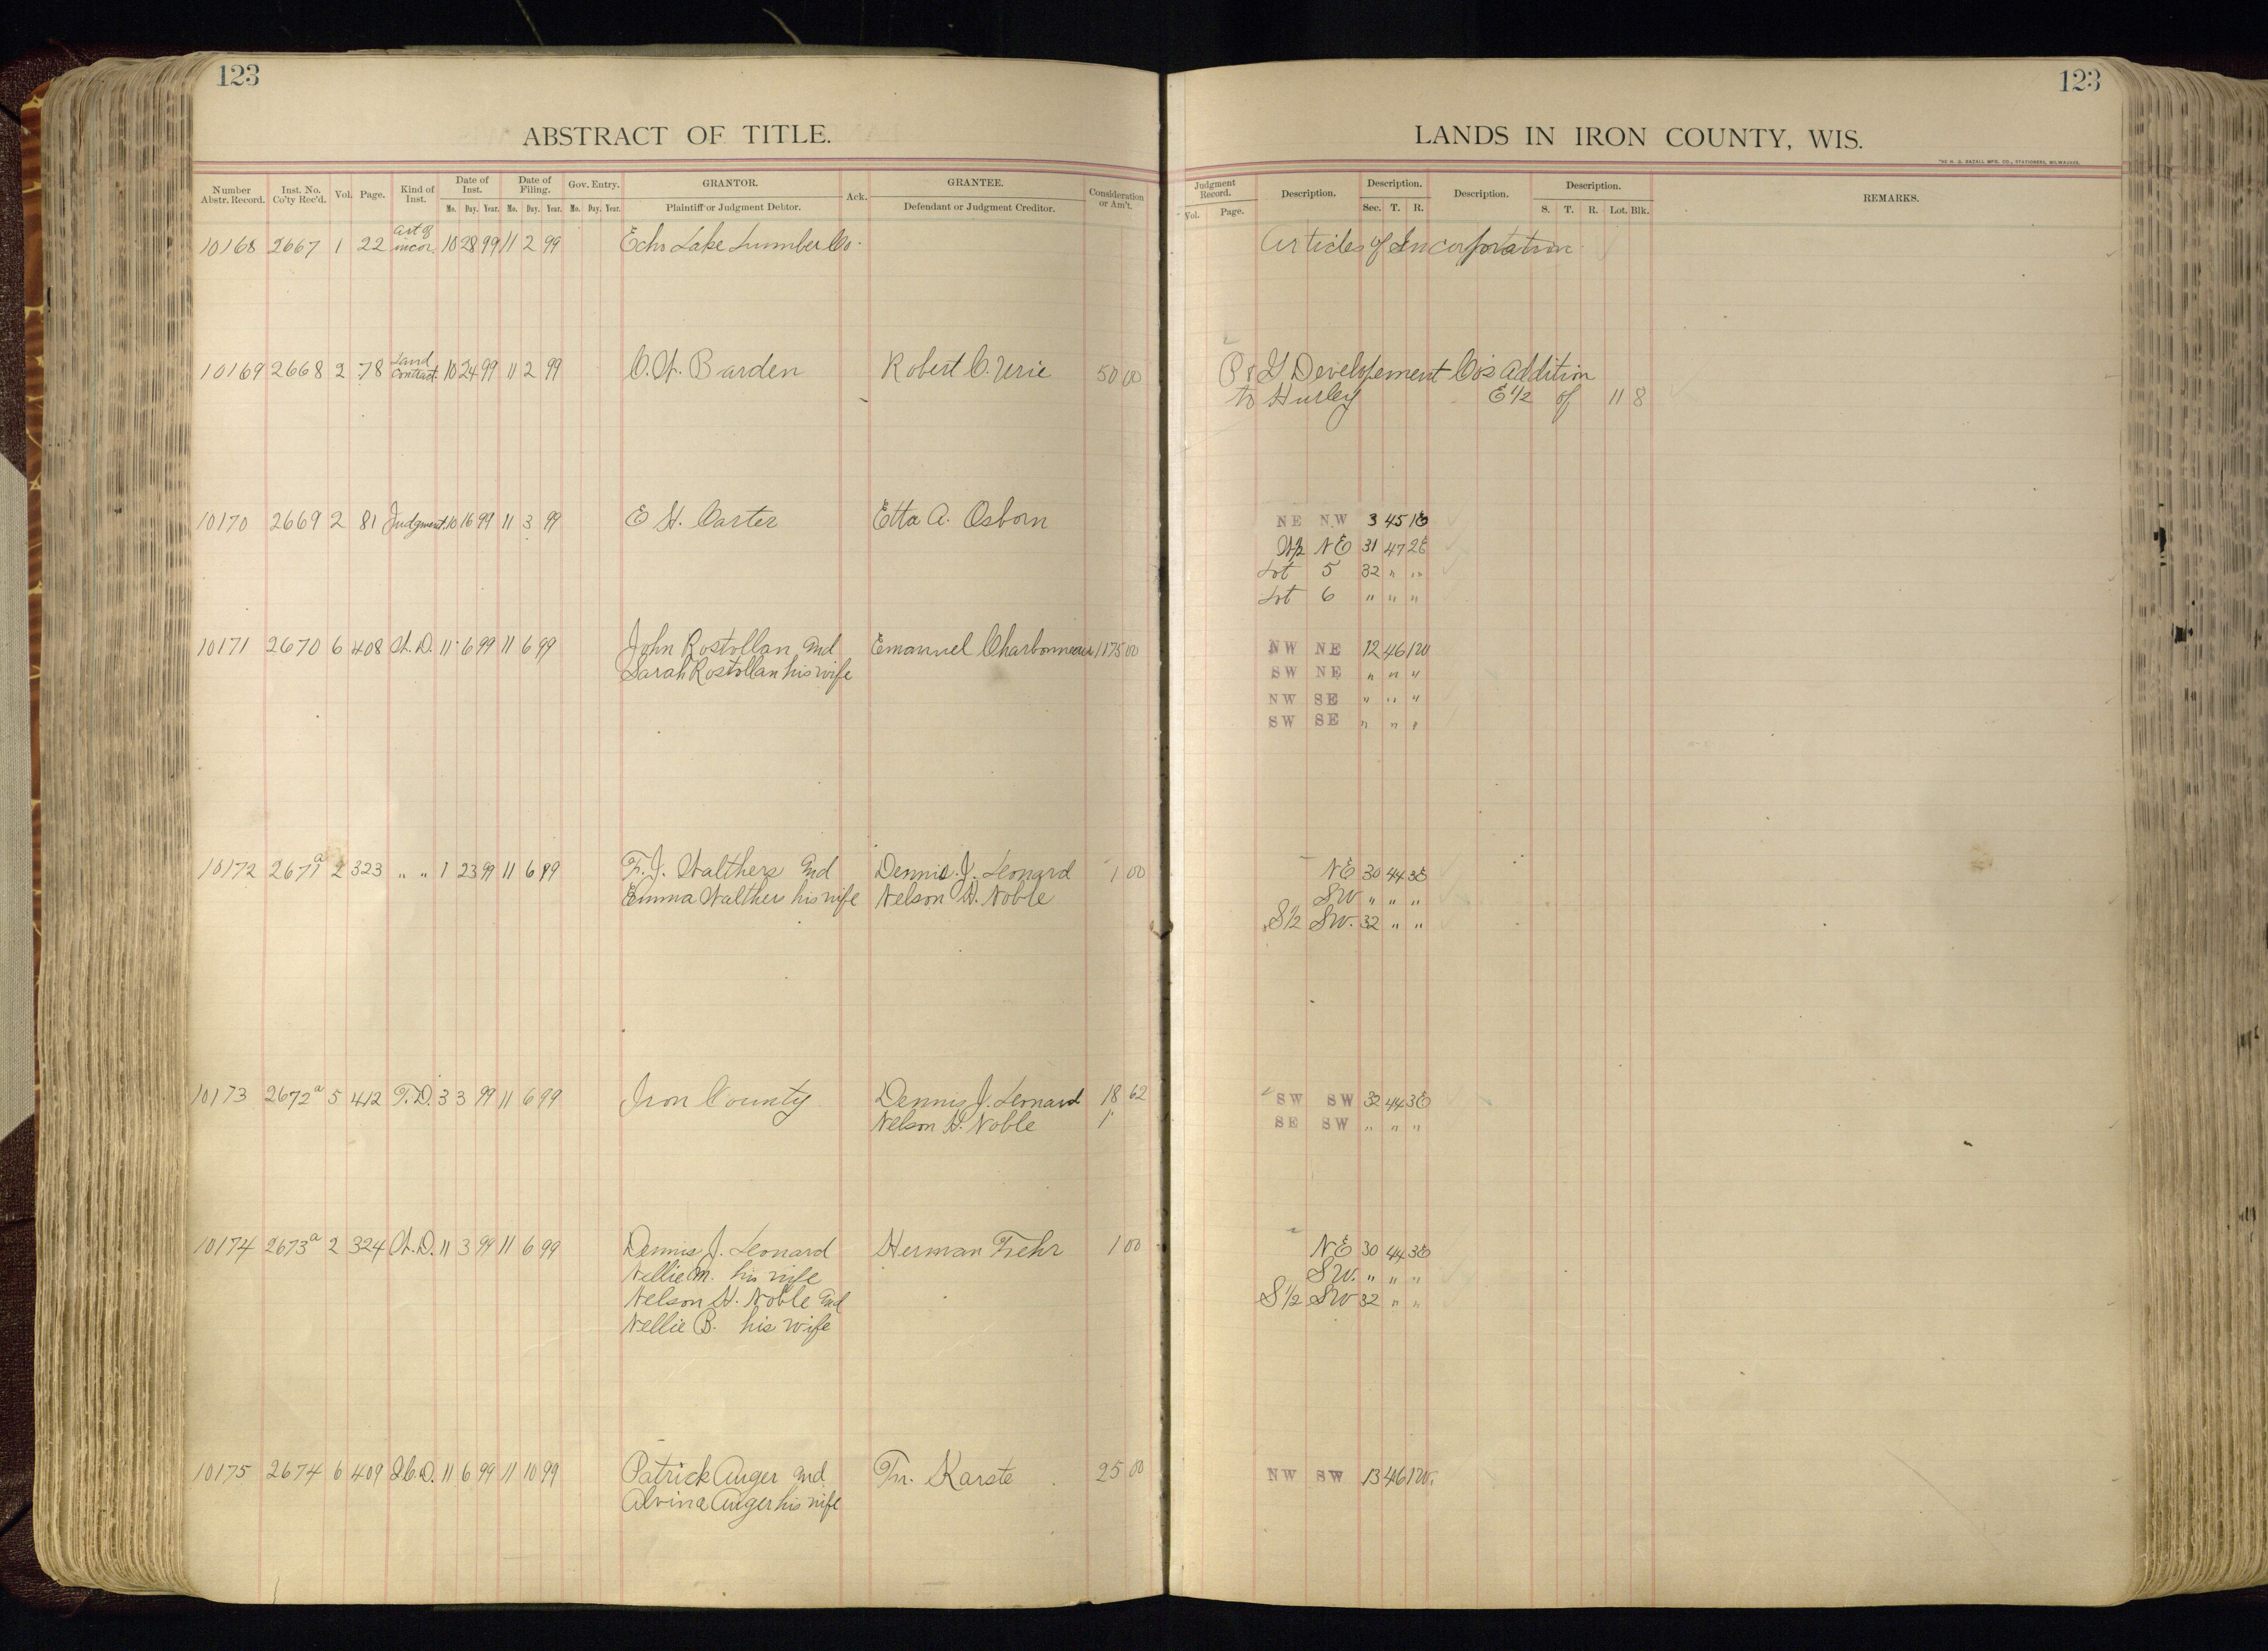 123
ABSTRACT OF TITLE.
Number Abstr. Record. Inst. No. Co'ty Rec'd. Vol. Page. Kind of Inst. Date of Inst. Date of Filing. Gov. Entry. GRANTOR. Ack. GRANTEE. Consideration or Am't.
Mo. Day. Year. Mo. Day. Year. Mo. Day. Year. Plaintiff or Judgment Debtor. Defendant or Judgment Creditor.
10168 2667 1 22 Art of incor. 10 28 99 11 2 99 Echo Lake Lumber Co.
10169 2668 2 78 Land Contract. 10 24 99 11 2 99 C. W. Barden Robert C. Urie 50 00
10170 2669 2 81 Judgment 10 16 99 11 3 99 E H. Carter Etta A. Osborn
10171 2670 6 408 W. D. 11 6 99 11 6 99 John Rostollan and Emanuel Charbonneau 1175 00
Sarah Rostollan his wife
10172 2671a 2 323 " " 1 23 99 11 6 99 F. J. Walthers and Dennis J. Leonard 1 00
Emma Walthers his wife Nelson H. Noble
10173 2672a 5 412 T. D. 3 3 99 11 6 99 Iron County Dennis J. Leonard 18 62
Nelson H. Noble 1
10174 2673a 2 324 W. D. 11 3 99 11 6 99 Dennis J. Leonard Herman Fehr 1 00
Nellie M. his wife
Nelson H. Noble and
Nellie B. his wife
10175 2674 6 409 2.C.D. 11 6 99 11 10 99 Patrick Auger and Karste 25 00
Alvina Auger his wife
123
LANDS IN IRON COUNTY, WIS.
THE H. G. RAZALL MFG. CO., STATIONERS, MILWAUKEE.
Judgment Record. Description. Description. Description. Description. REMARKS.
Vol. Page. Sec. T. R. S. T. R. Lot. Blk.
Articles of Incorporation
P & G Developement Co's Addition
to Hurley E 1/2 of 11 8
NE NW 3 45 1E
W/2 NE 31 47 2E
Lot 5 32 " "
Lot 6 " " "
NW NE 12 46 1W
SW NE " " "
NW SE " " "
SW SE " " "
NE 30 44 3E
SW " " "
S 1/2 SW. 32 " "
SW SW 32 44 3E
SE SW " " "
NE 30 44 3E
SW. " " "
S 1/2 SW 32 " "
NW SW 13 46 1W.